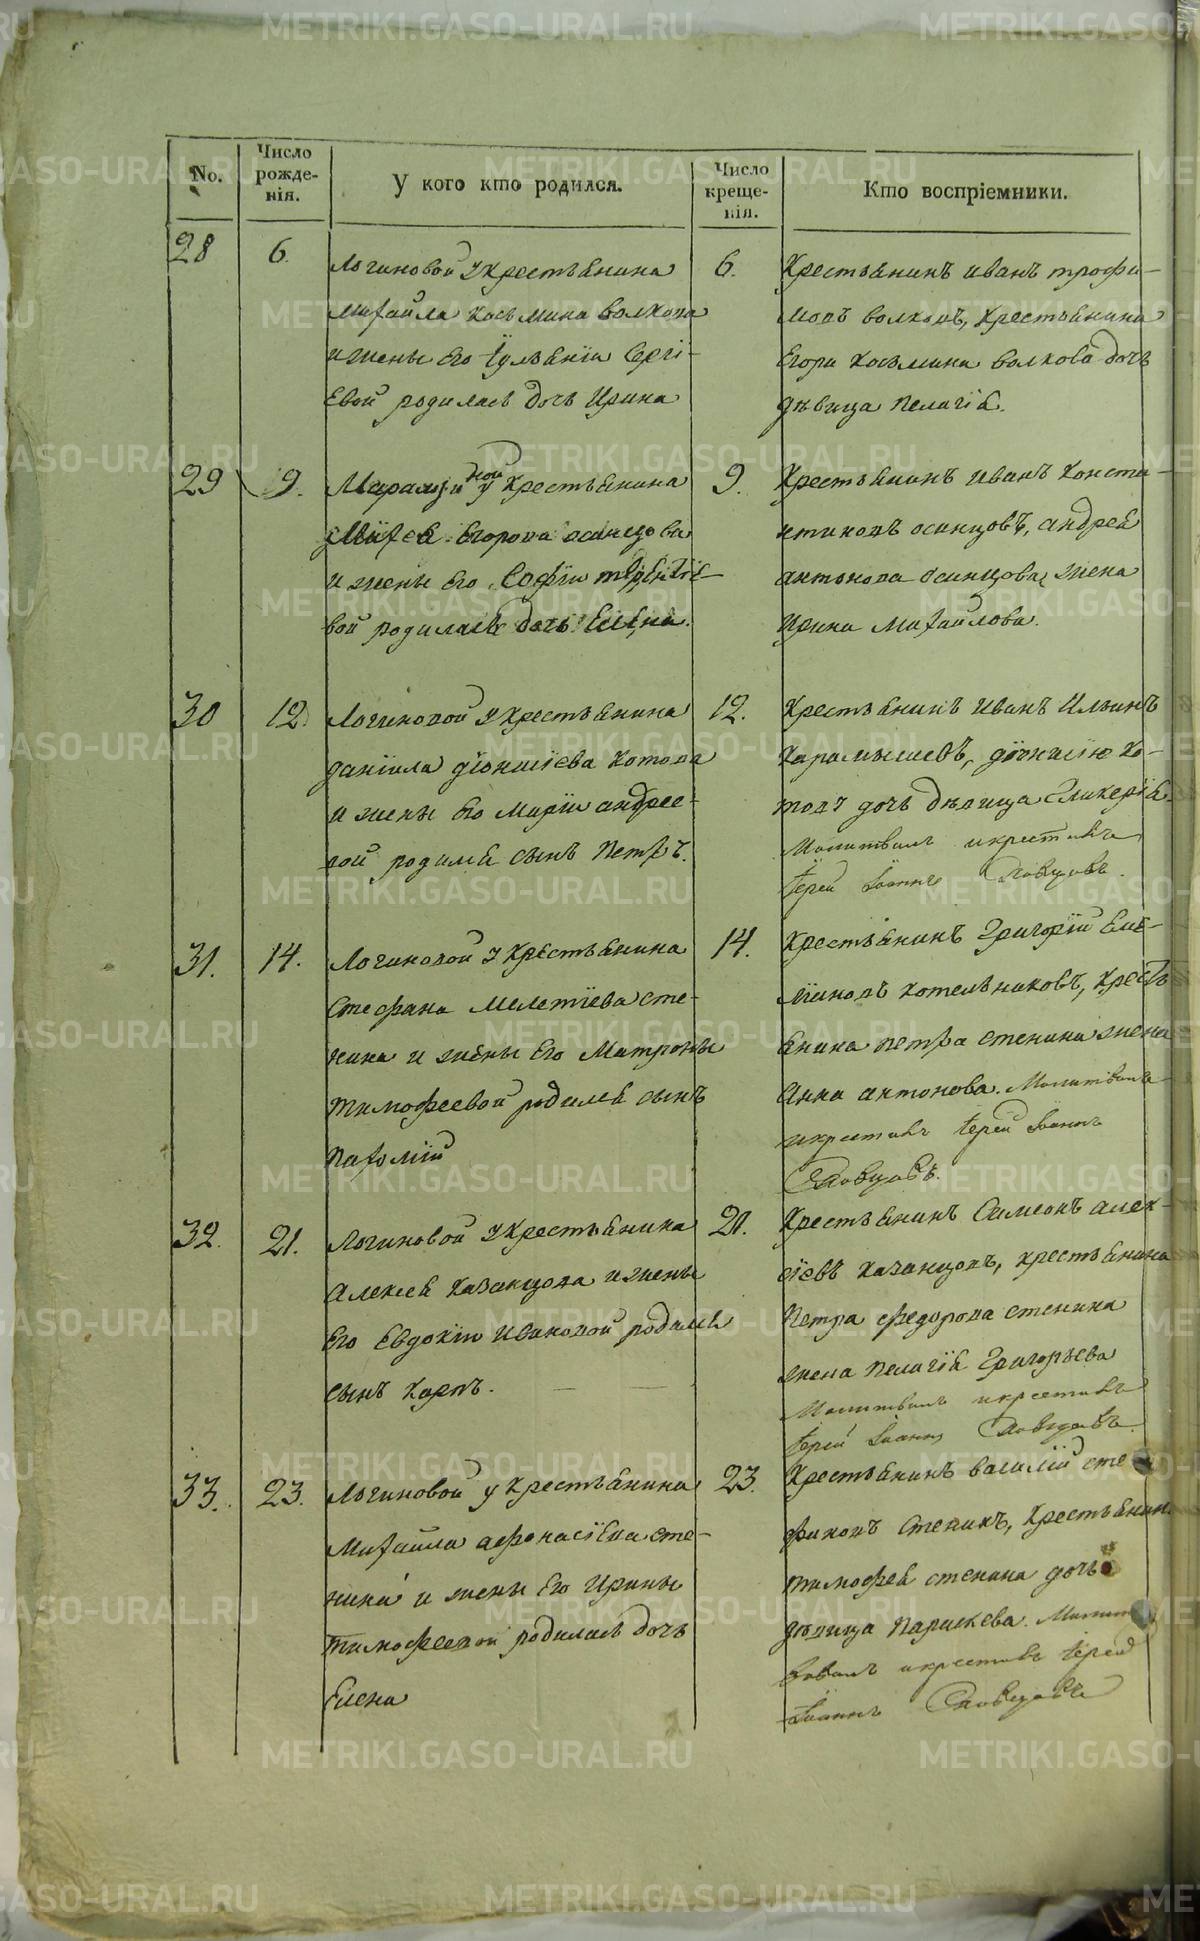 No.
Число рожде-нія.
У кого кто родился.
Число креще-нія.
Кто воспріемники.
28
6.
Логиновой у крестьянина
Михайла Косьмина Волкова
и жены его Іульяніи Сергі-
евой родилась дочь Ирина
6.
Крестьянинъ Иванъ Трофи-
мовъ Волковъ, крестьянина
Егора Косьмина Волкова дочь
дѣвица Пелагія.
29
9.
у крестьянина
Егорова Осинцова
и жены его Софіи Терентіе-
вой родилась дочь Елена.
9.
Крестьянинъ Иванъ Конста-
нтиновъ Осинцовъ, Андрея
Антонова Осинцова жена
Ирина Михайлова.
30
12.
Логиновой у крестьянина
Даніила Діонисіева Котова
и жены его Маріи Андрее-
вой родился сынъ Петръ.
12.
Крестьянинъ Иванъ Ильинъ
Карамышевъ, Діонисію Ко-
това дочь дѣвица Гликерія.
Молитвилъ и крестилъ
Іерей Іоаннъ Словцовъ.
31.
14.
Логиновой у крестьянина
Стефана Мелетіева Сте-
нина и жены его Матроны
Тимофеевой родился сынъ
Пахомій
14.
Крестьянинъ Григорій Еме-
ліановъ Котельниковъ, кресть
янина Петра Стенина жена
Анна Антонова. Молитвилъ
и крестилъ Іерей Іоаннъ
Словцовъ.
32.
21.
Логиновой у крестьянина
Алексея Казанцова и жены
его Евдокіи Ивановой родился
сынъ Карпъ.
21.
Крестьянинъ Симеонъ Алек-
сіевъ Казанцовъ, крестьянина
Петра Федорова Стенина
жена Пелагія Григорьева
Молитвилъ и крестилъ
Іерей Іоаннъ Словцовъ.
33.
23.
Логиновой у крестьянина
Михайла Афонасіева Сте-
нина и жены его Ирины
Тимофеевой родилась дочь
Елена
23.
Крестьянинъ Василій Сте
фановъ Стенинъ, крестьянин
Тимофея Стенина дочь
дѣвица Параскева. Молит
вовалъ и крестилъ Іерей
Іоаннъ Словцовъ
METRIKI.GASO-URAL.RU